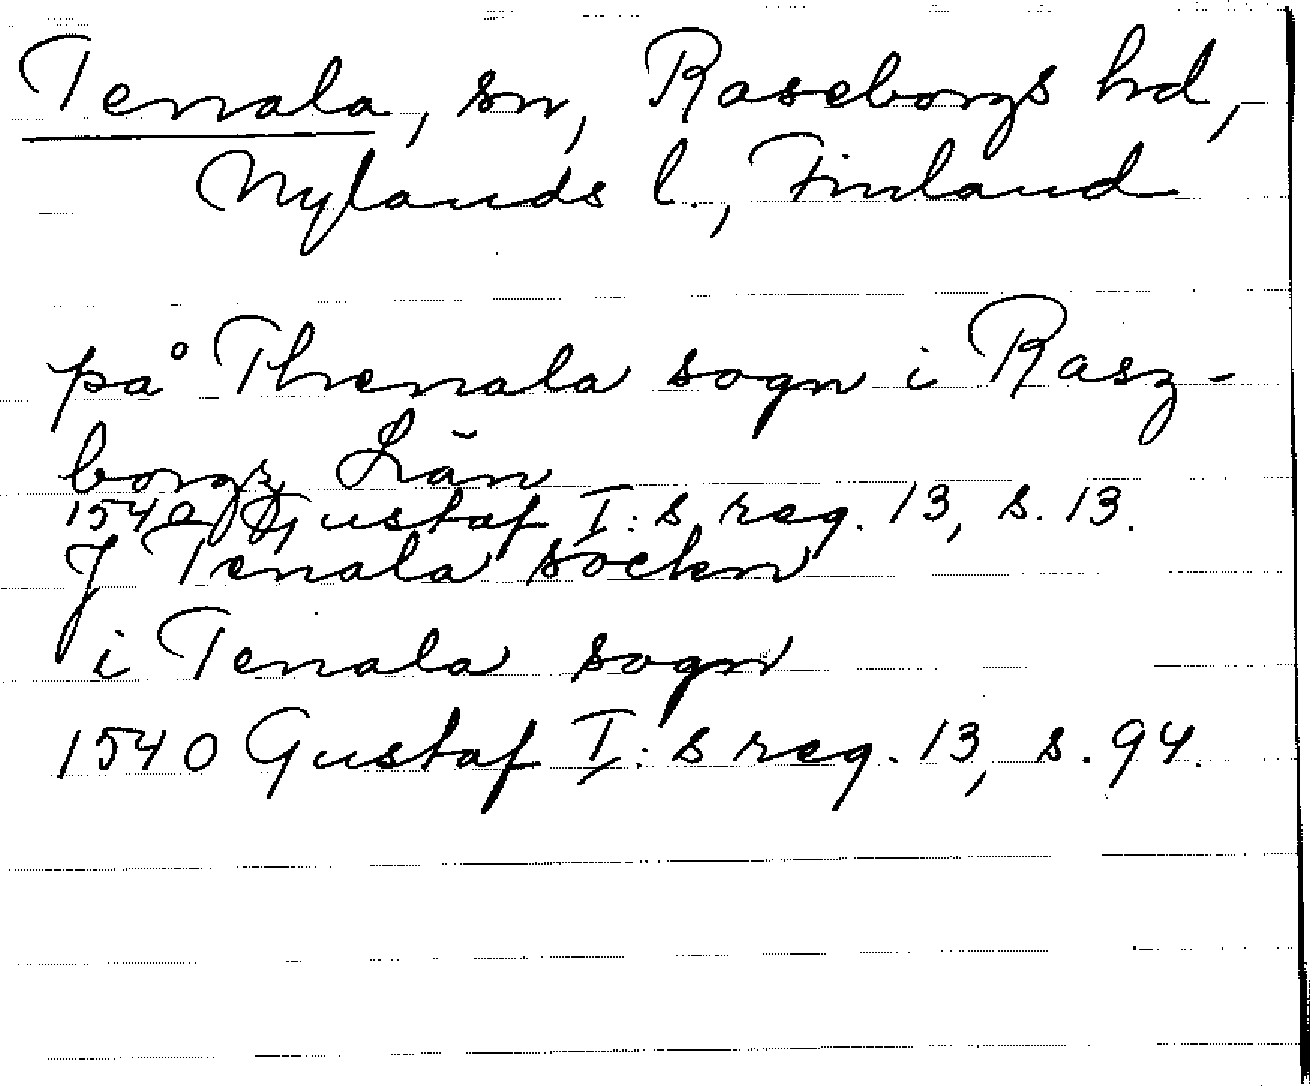 Tenala, sn, Raseborgs hd,
Nylands l., Finland
på Thenala sogn i Rasz-
borgs Län
1540 Gustaf I:s reg. 13, s. 13.
J Tenala socken
i Tenala sogn
1540 Gustaf I:s reg. 13, s. 94.